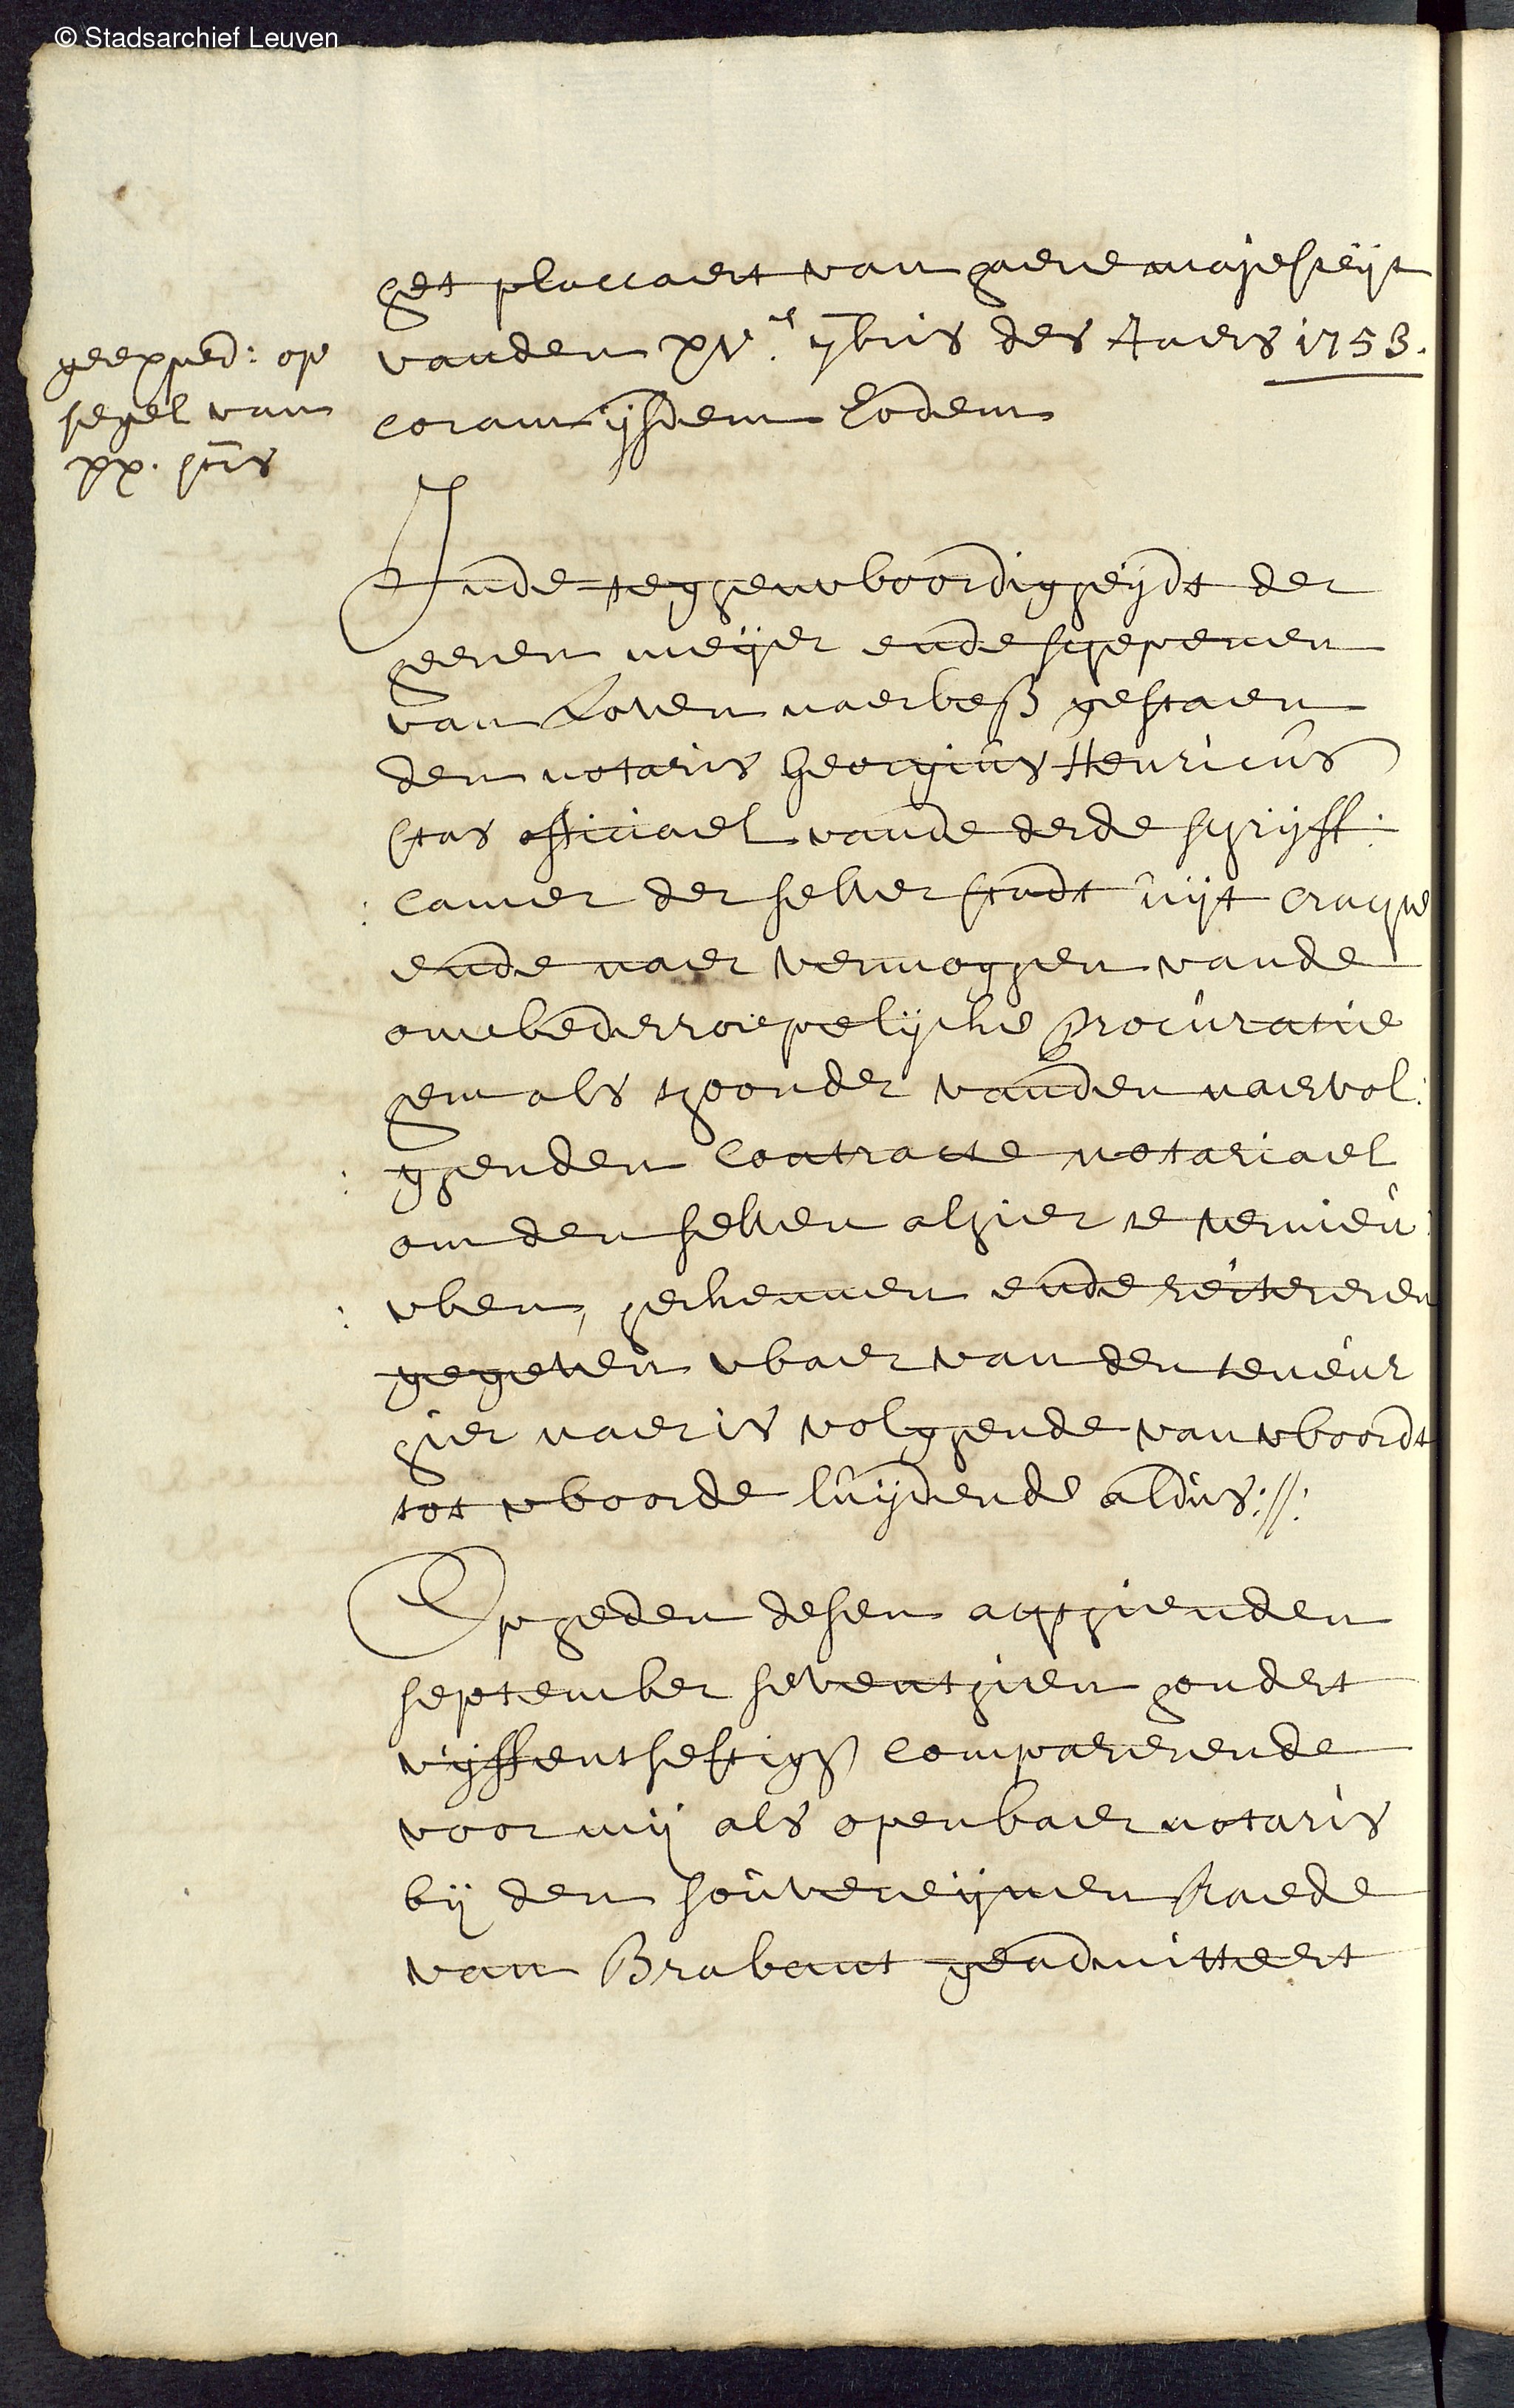 © Stadsarchief Leuven
het placcaert van haere majesteijt
vanden xv.e 7bris des Jaers 1753.
coram ijsdem Eodem
geexped: op
segel van
xx. st~s
Inde tegghenwoordigheijdt der
heeren meijer ende schepenen
van Loven naerbess gestaen
den notaris Georgius Henricus
stas officiael vande derde schrijff:
:camer der selver stadt uijt crachte
ende naer vermoghen vande
onwederroepelijcke procuratie
hem als thoonder vanden naervol:
:ghenden contracte notariael
om den selven alhier te vernieu:
:wen, herkennen ende reitereren
gegeven waer van den teneur
hier naer is volghende van woordt
tot woorde luijdende aldus://:
Op heden desen achthienden
september seventhien hondert
vijffentsestigh comparerende
voor mij als openbaer notaris
bij den souvereijnen Raede
van Brabant geadmitteert